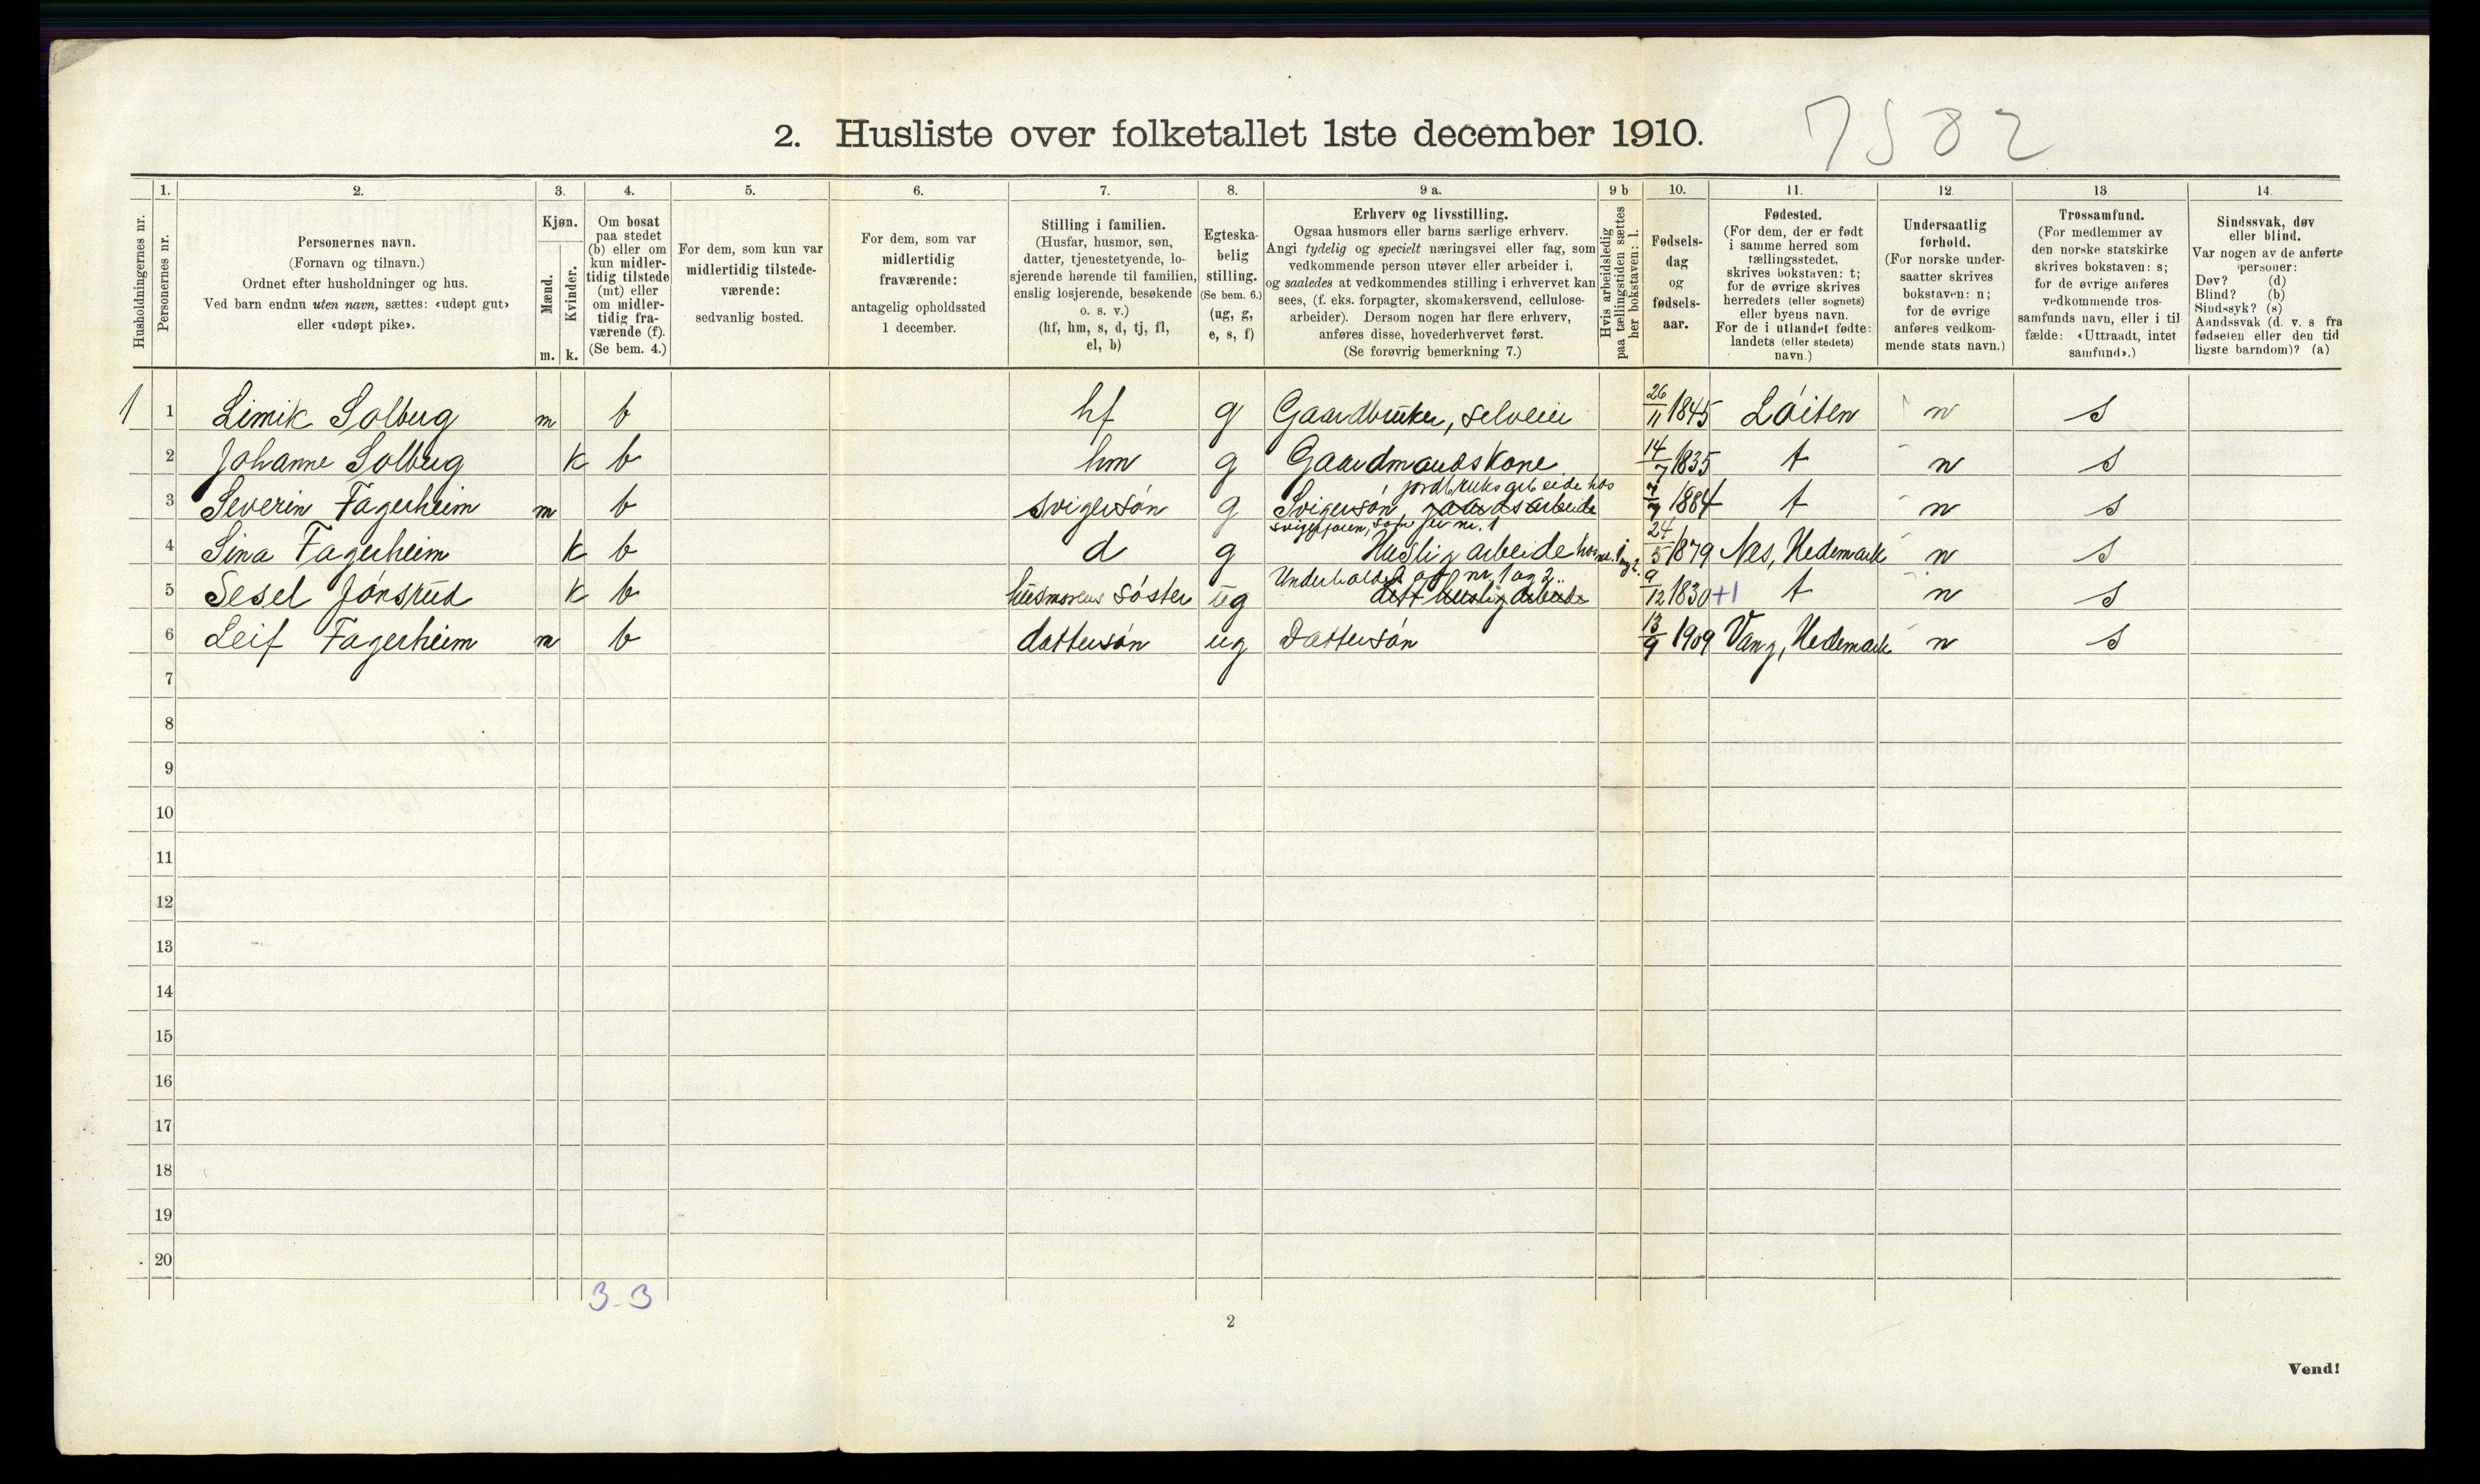 2. Husliste over folketallet 1ste december 1910.
7582
1. 2. 3. 4. 5. 6. 7. 8. 9 a. 9 b 10. 11. 12. 13. 14.
Husholdningernes nr.
Personernes nr.
Personernes navn.
(Fornavn og tilnavn.)
Ordnet efter husholdninger og hus.
Ved barn endnu uten navn, sættes: «udøpt gut»
eller «udøpt pike».
Kjøn.
Mænd.
Kvinder.
m. k.
Om bosat
paa stedet
(b) eller om
kun midler-
tidig tilstede
(mt) eller
om midler-
tidig fra-
værende (f).
(Se bem. 4.)
For dem, som kun var
midlertidig tilstede-
værende:
sedvanlig bosted.
For dem, som var
midlertidig
fraværende:
antagelig opholdssted
1 december.
Stilling i familien.
(Husfar, husmor, søn,
datter, tjenestetyende, lo-
sjerende hørende til familien,
enslig losjerende, besøkende
o. s. v.)
(hf, hm, s, d, tj, fl,
el, b)
Egteska-
belig
stilling.
(Se bem. 6.)
(ug, g,
e, s, f)
Erhverv og livsstilling.
Ogsaa husmors eller barns særlige erhverv.
Angi tydelig og specielt næringsvei eller fag, som
vedkommende person utøver eller arbeider i,
og saaledes at vedkommendes stilling i erhvervet kan
sees, (f. eks. forpagter, skomakersvend, cellulose-
arbeider). Dersom nogen har flere erhverv,
anføres disse, hovederhvervet først.
(Se forøvrig bemerkning 7.)
Hvis arbeidsledig
paa tællingstiden sættes
her bokstaven: l.
Fødsels-
dag
og
fødsels-
aar.
Fødested.
(For dem, der er født
i samme herred som
tællingsstedet,
skrives bokstaven: t;
for de øvrige skrives
herredets (eller sognets)
eller byens navn.
For de i utlandet fødte:
landets (eller stedets)
navn.)
Undersaatlig
forhold.
(For norske under-
saatter skrives
bokstaven: n;
for de øvrige
anføres vedkom-
mende stats navn.)
Trossamfund.
(For medlemmer av
den norske statskirke
skrives bokstaven: s;
for de øvrige anføres
vedkommende tros-
samfunds navn, eller i til-
fælde: «Uttraadt, intet
samfund».)
Sindssvak, døv
eller blind.
Var nogen av de anførte
personer:
Døv? (d)
Blind? (b)
Sindssyk? (s)
Aandssvak (d. v. s. fra
fødselen eller den tid-
ligste barndom)? (a)
1 1 Limik Solberg m b hf g Gaardbruker, selveier 26/11 1845 Löiten n s
2 Johanne Solberg k b hm g Gaardmandskone 14/7 1835 t n s
jordbruksarbeide hos
3 Severin Fagerheim m b svigersön g Svigersön, gaardsarbeide 7/7 1884 t n s
svigerfaren, som er nr. 1
4 Sina Fagerheim k b d g Huslig arbeide hos nr. 1 og 2. 24/5 1879 Nes, Hedemark n s
Underholdes af nr. 1 og 2.
5 Sesel Jönsrud k b husmorens söster ug lett huslig arbeide 9/12 1830 +1 t n s
6 Leif Fagerheim m b dattersön ug Dattersön 13/9 1909 Vang, Hedemark n s
7
8
9
10
11
12
13
14
15
16
17
18
19
20
3-3
2
Vend!